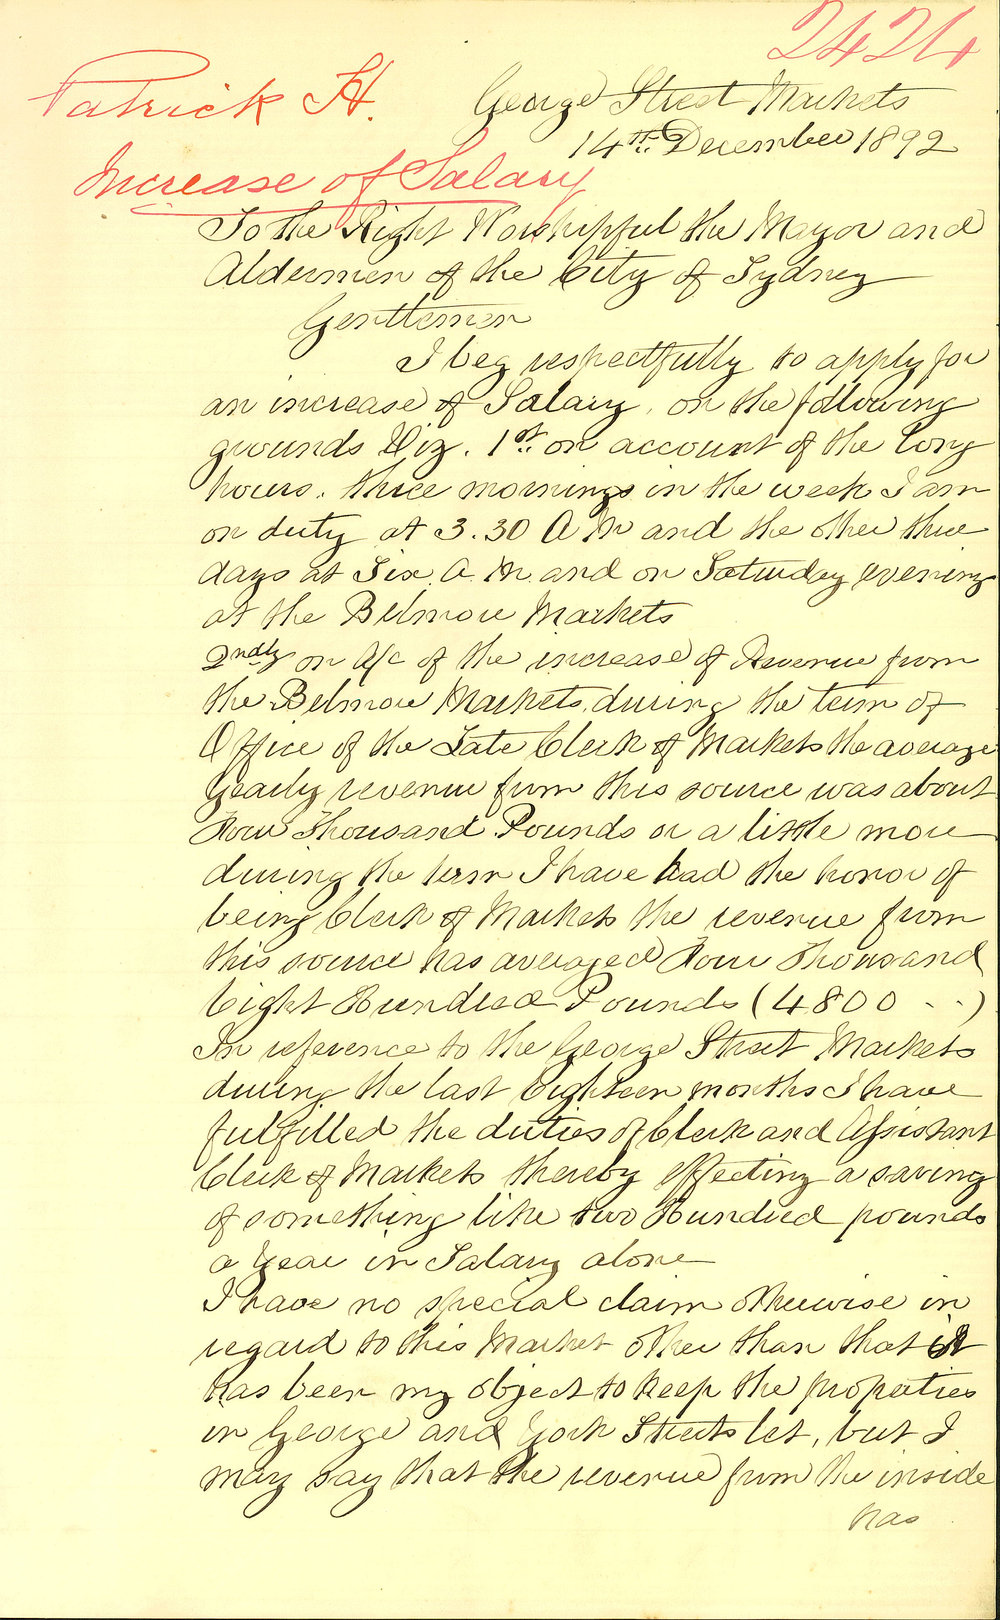 2424
Patrick H.
George Street Markets
14th. December 1892
Increase of Salary
To the Right Worshipful the Mayor and
Aldermen of the City of Sydney
Gentlemen
I beg respectfully to apply for
an increase of Salary, on the following
grounds Viz. 1st. on account of the long
hours. three mornings in the week I am
on duty at 3.30 A M and the other three
days at Six A. M. and on Saturday evening
at the Belmore Markets
2ndly on A/c of the increase of Revenue from
the Belmore Markets, during the term of
Office of the Late Clerk of Markets the average
Yearly revenue from this source was about
Four Thousand Pounds or a little more
during the term I have had the honor of
being Clerk of Markets the revenue from
this source has averaged Four Thousand
Eight Hundred Pounds (4800 - -)
In reference to the George Street Markets
during the last Eighteen months I have
fulfilled the duties of Clerk and Assistant
Clerk of Markets thereby effecting a saving
of something like two Hundred pounds
a Year in Salary alone
I have no special claim otherwise in
regard to this Market other than that it
has been my object to keep the properties
in George and York Streets let, but I
may say that the revenue from the inside
has